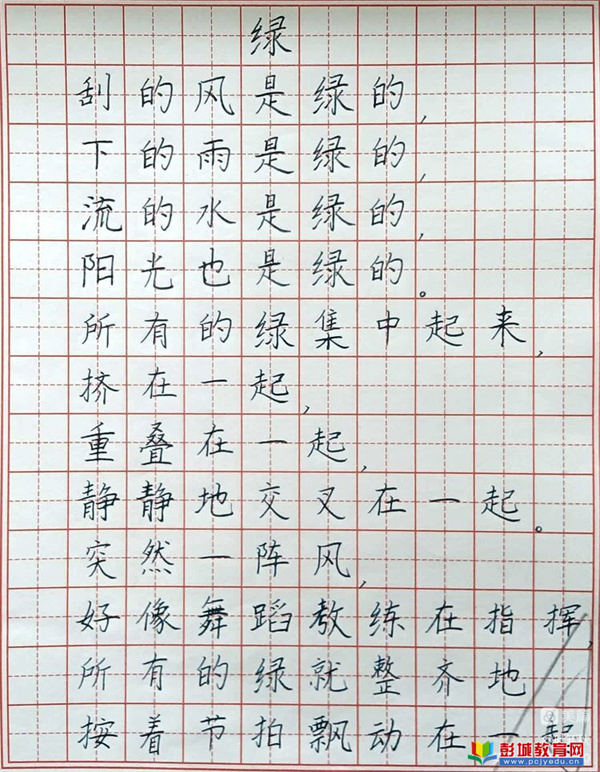 绿
刮的风是绿的，
下的雨是绿的，
流的水是绿的，
阳光也是绿的。
所有的绿集中起来，
挤在一起，
重叠在一起，
静静地交叉在一起。
突然一阵风，
好像舞蹈教练在指挥，
所有的绿就整齐地
按着节拍飘动在一起
彭城教育网
www.pcjyedu.cn